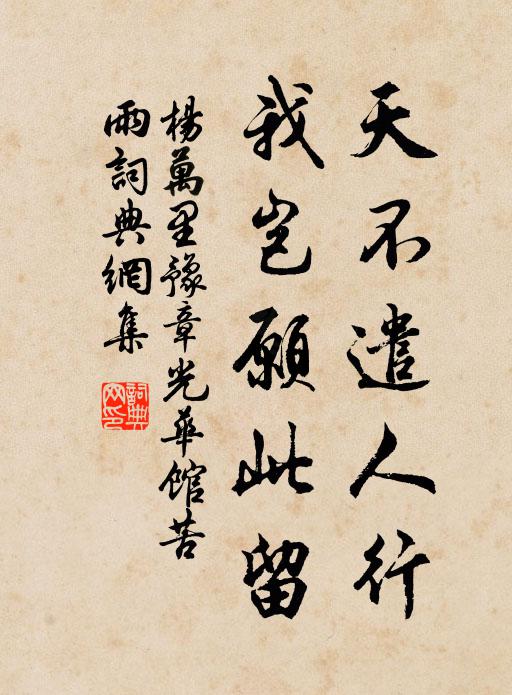 天不遣人行
我岂願此留
楊萬里豫章光華館苦
雨詞典網集
詞典网印